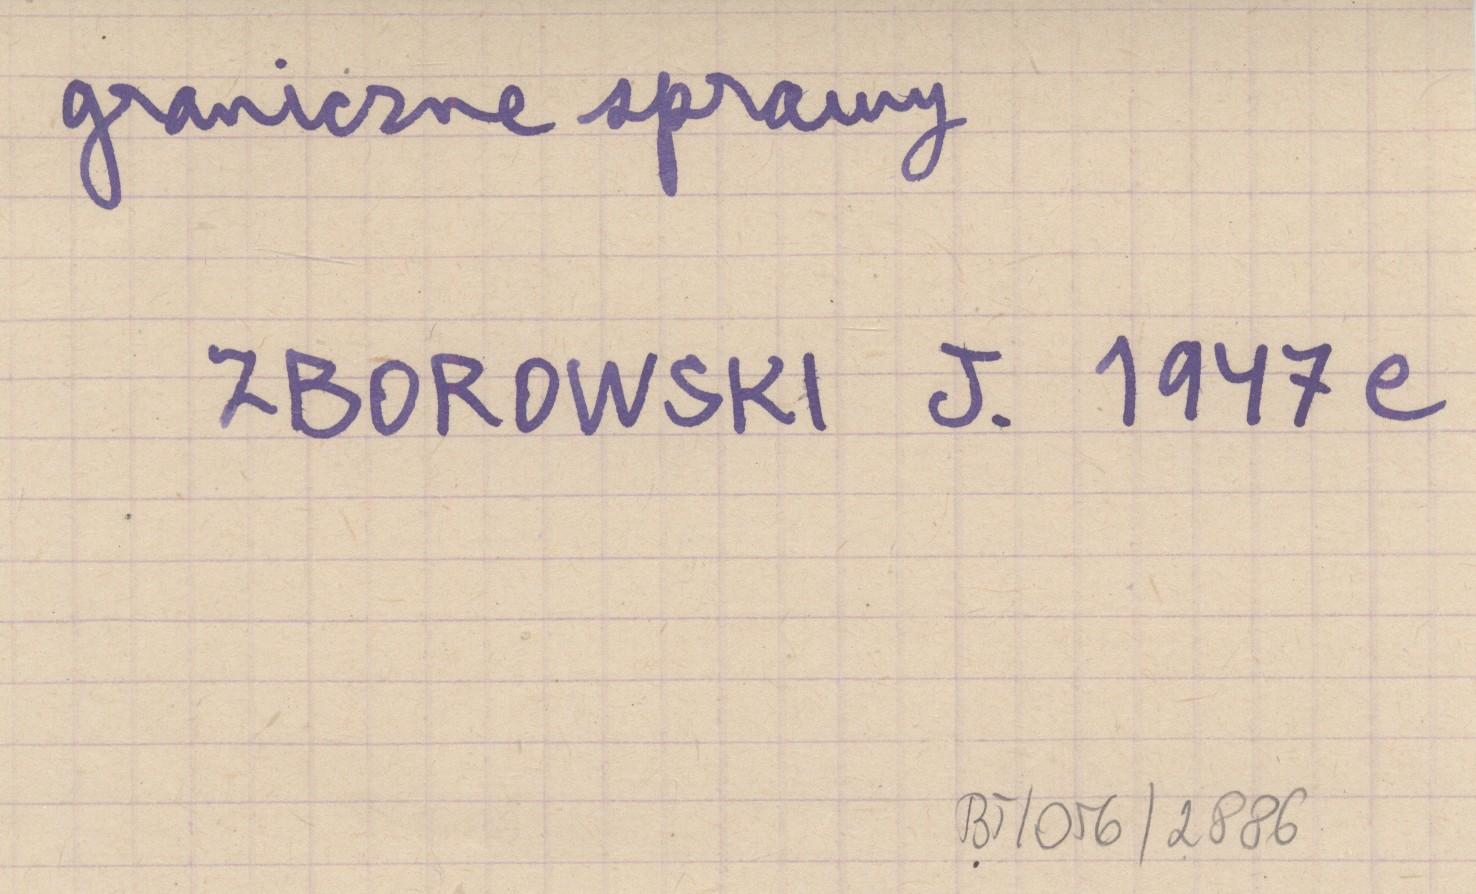 graniczne sprawy
ZBOROWSKI J. 1947 e
BT/056/2886